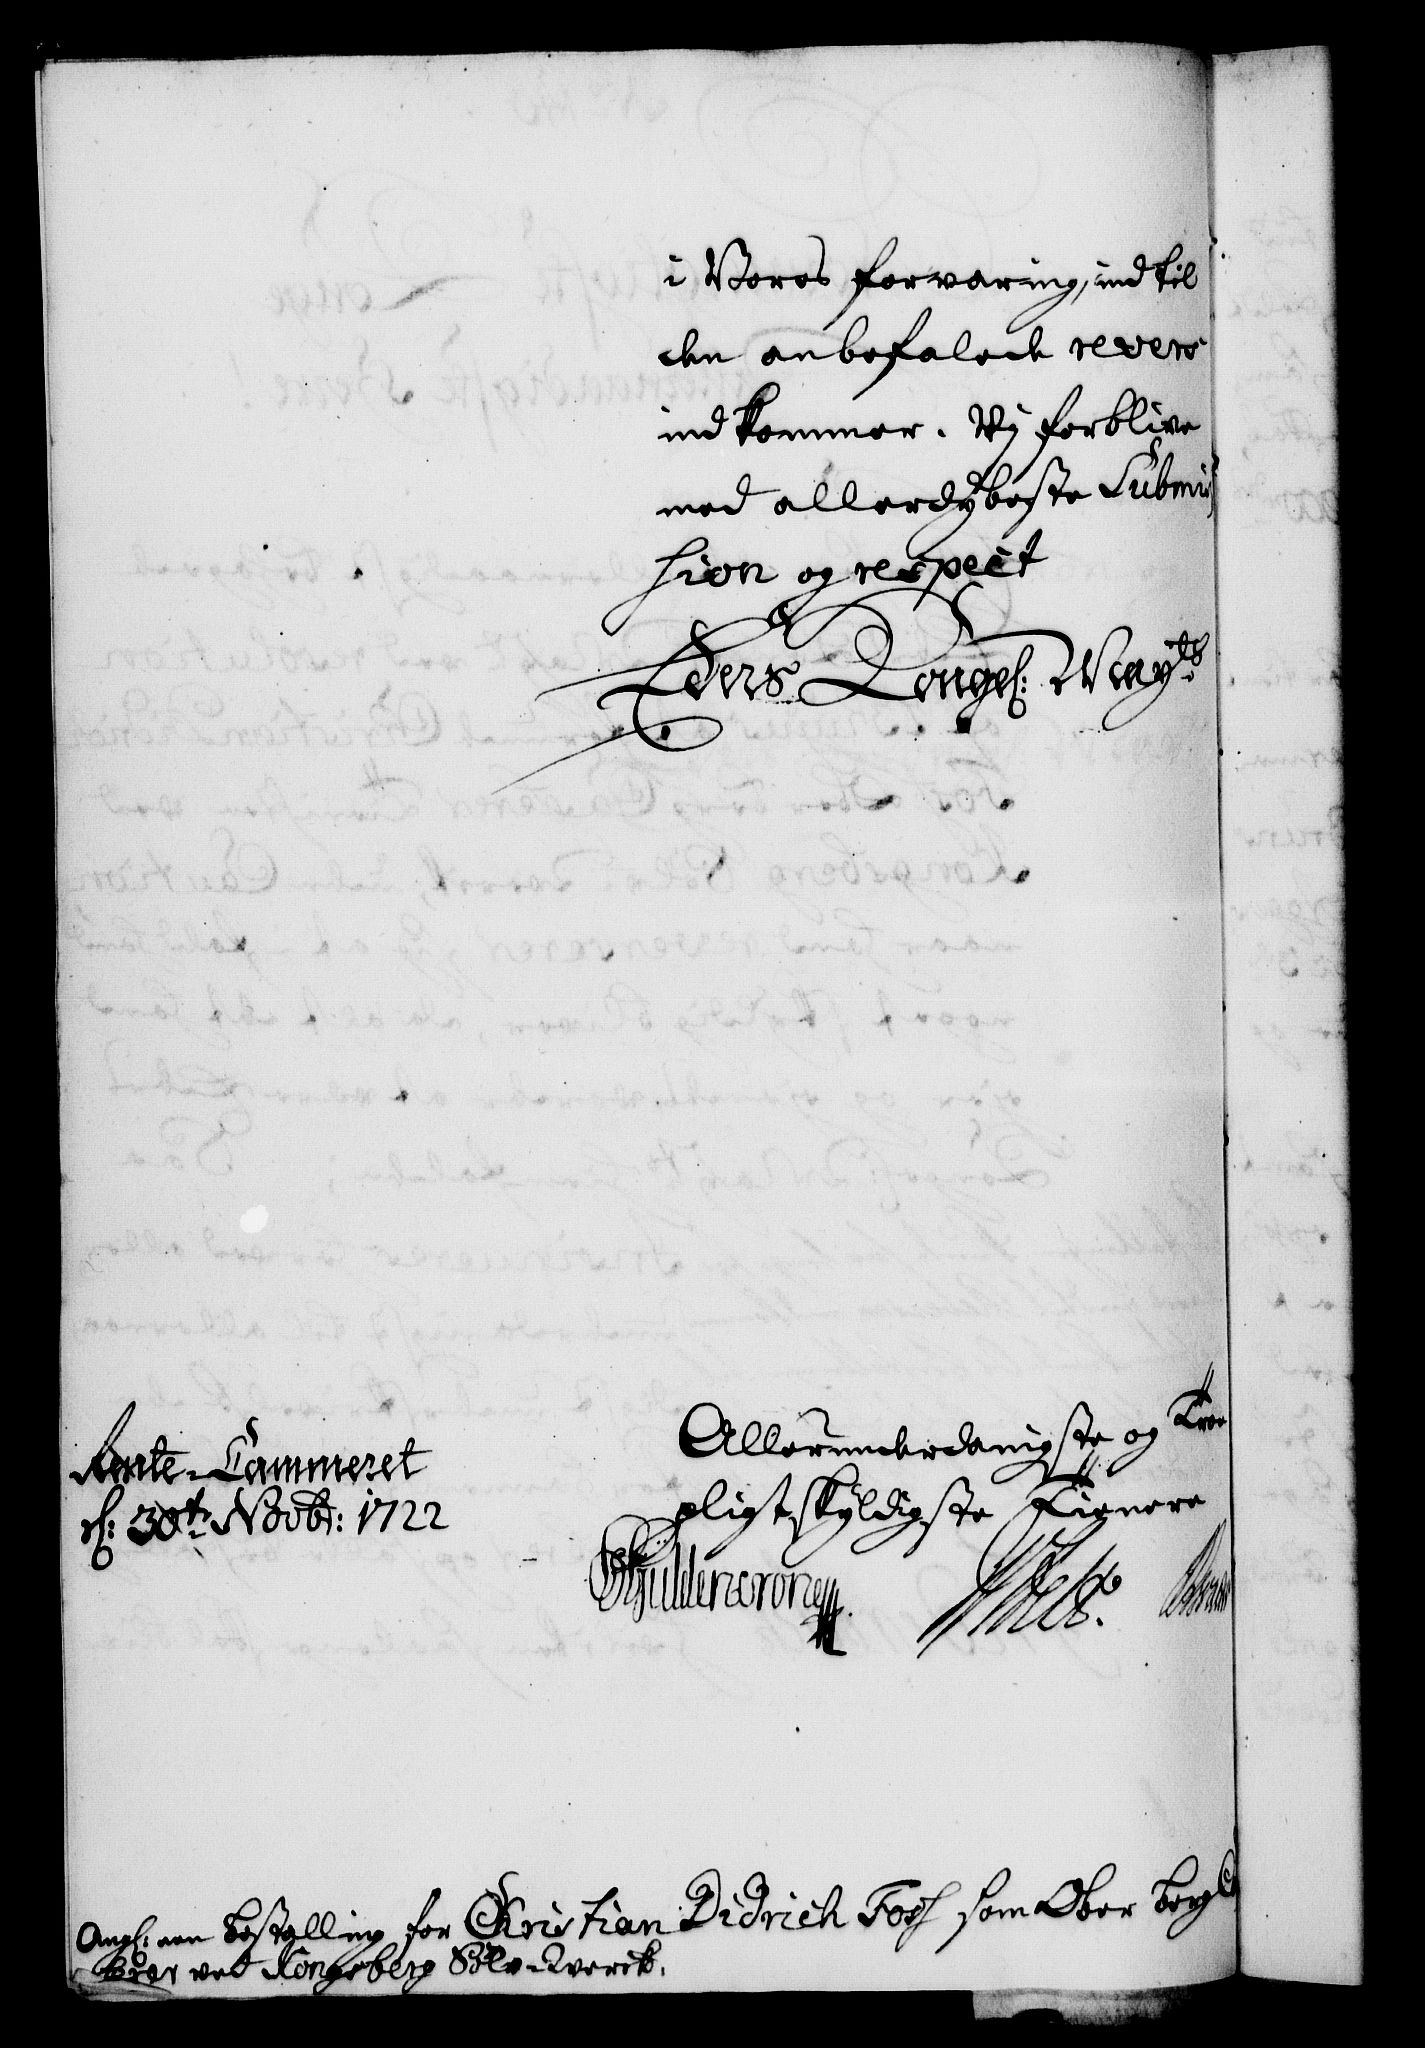 i Vores forvaring, ind til
den anbefalede revers
ind kommer. Vy forblive
med allerdybeste Submis
sion og respect
Eders Kongel: May:ts
Allerunderdanigste og Troe
pligtskyldigste Tienere
Rente-Cammeret
d: 30te Novbr: 1722
Gyldencrone
Ang: een bestalling for Christian Didrich Foss som Ober berg
ved Kongsberg Sölv-Werck.